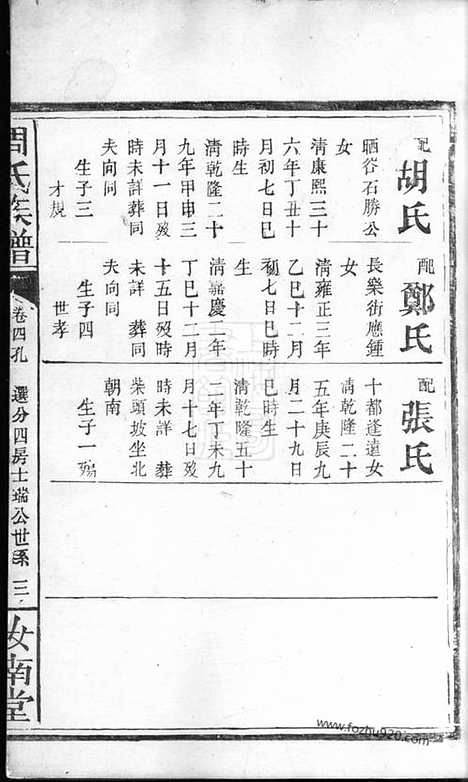 配 胡氏
晒谷石勝公
女
清康熙三十
六年丁丑十
月初七日巳
時生
清乾隆二十
九年甲申三
月十一日歿
時未詳葬同
夫向同
生子三
才規
配 鄭氏
長樂街應鍾
女
清雍正三年
乙巳十二月
初七日巳時
生
清嘉慶二年
丁巳十二月
十五日歿時
未詳 葬同
夫向同
生子四
世孝
配 張氏
十都逢遠女
清乾隆二十
五年庚辰九
月二十九日
巳時生
清乾隆五十
二年丁未九
月十七日歿
時未詳 葬
柴頭坡坐北
朝南
生子一殤
周氏族譜
卷四孔 選分四房士瑞公世系 三
汝南堂
www.fozhu920.com